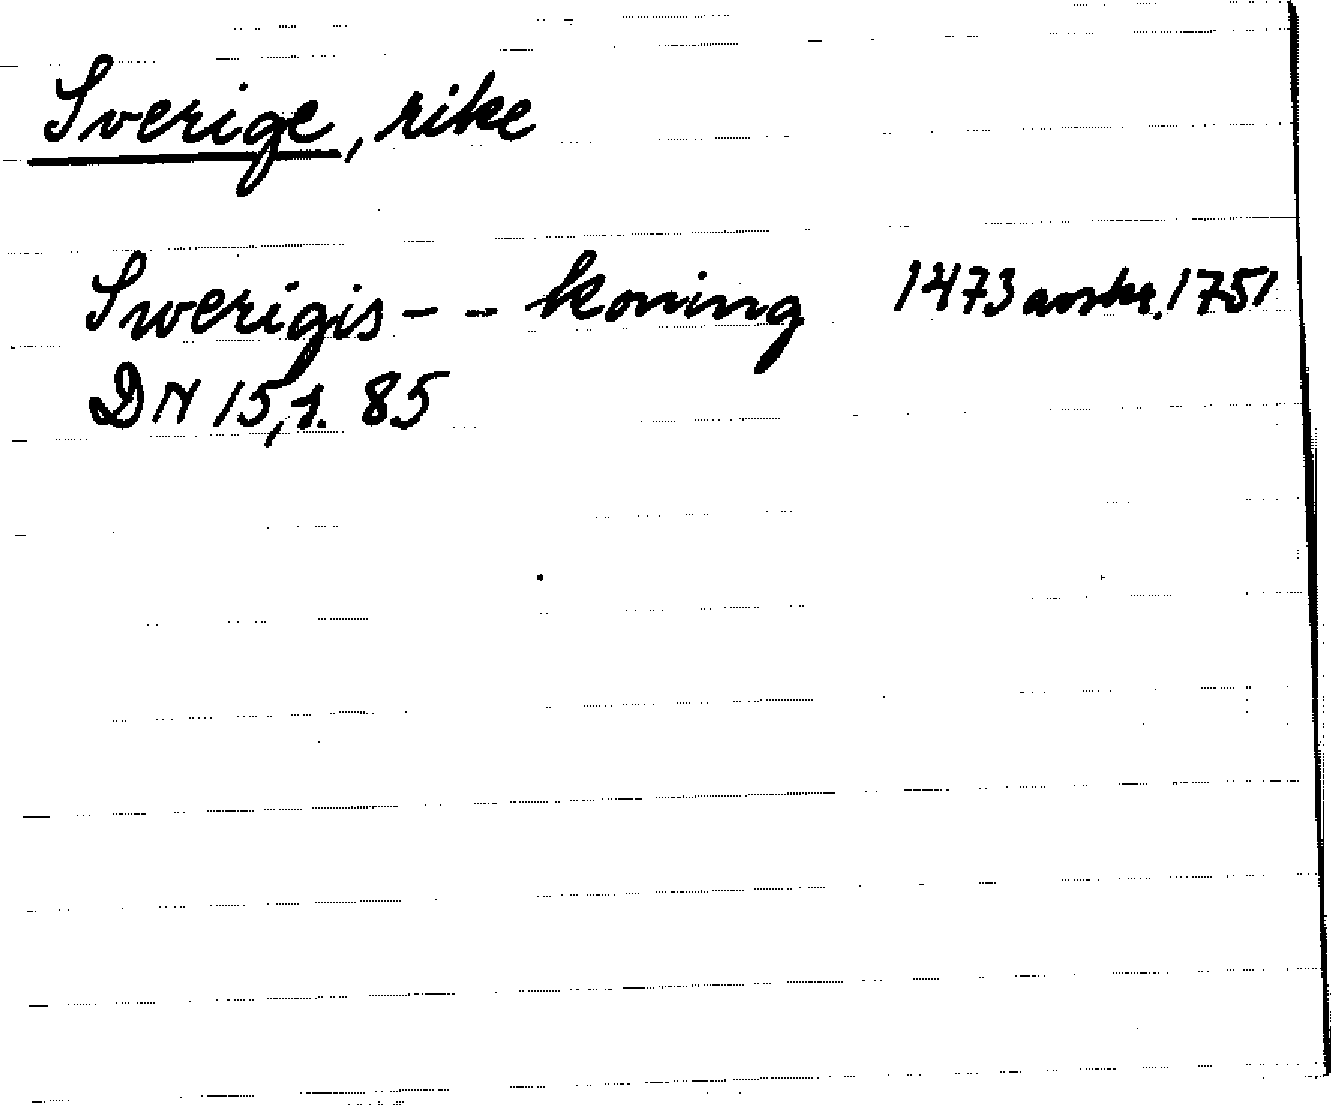 Sverige, rike
Swerigis - - koning 1473 avskr. 1751
DN 15,1. 85